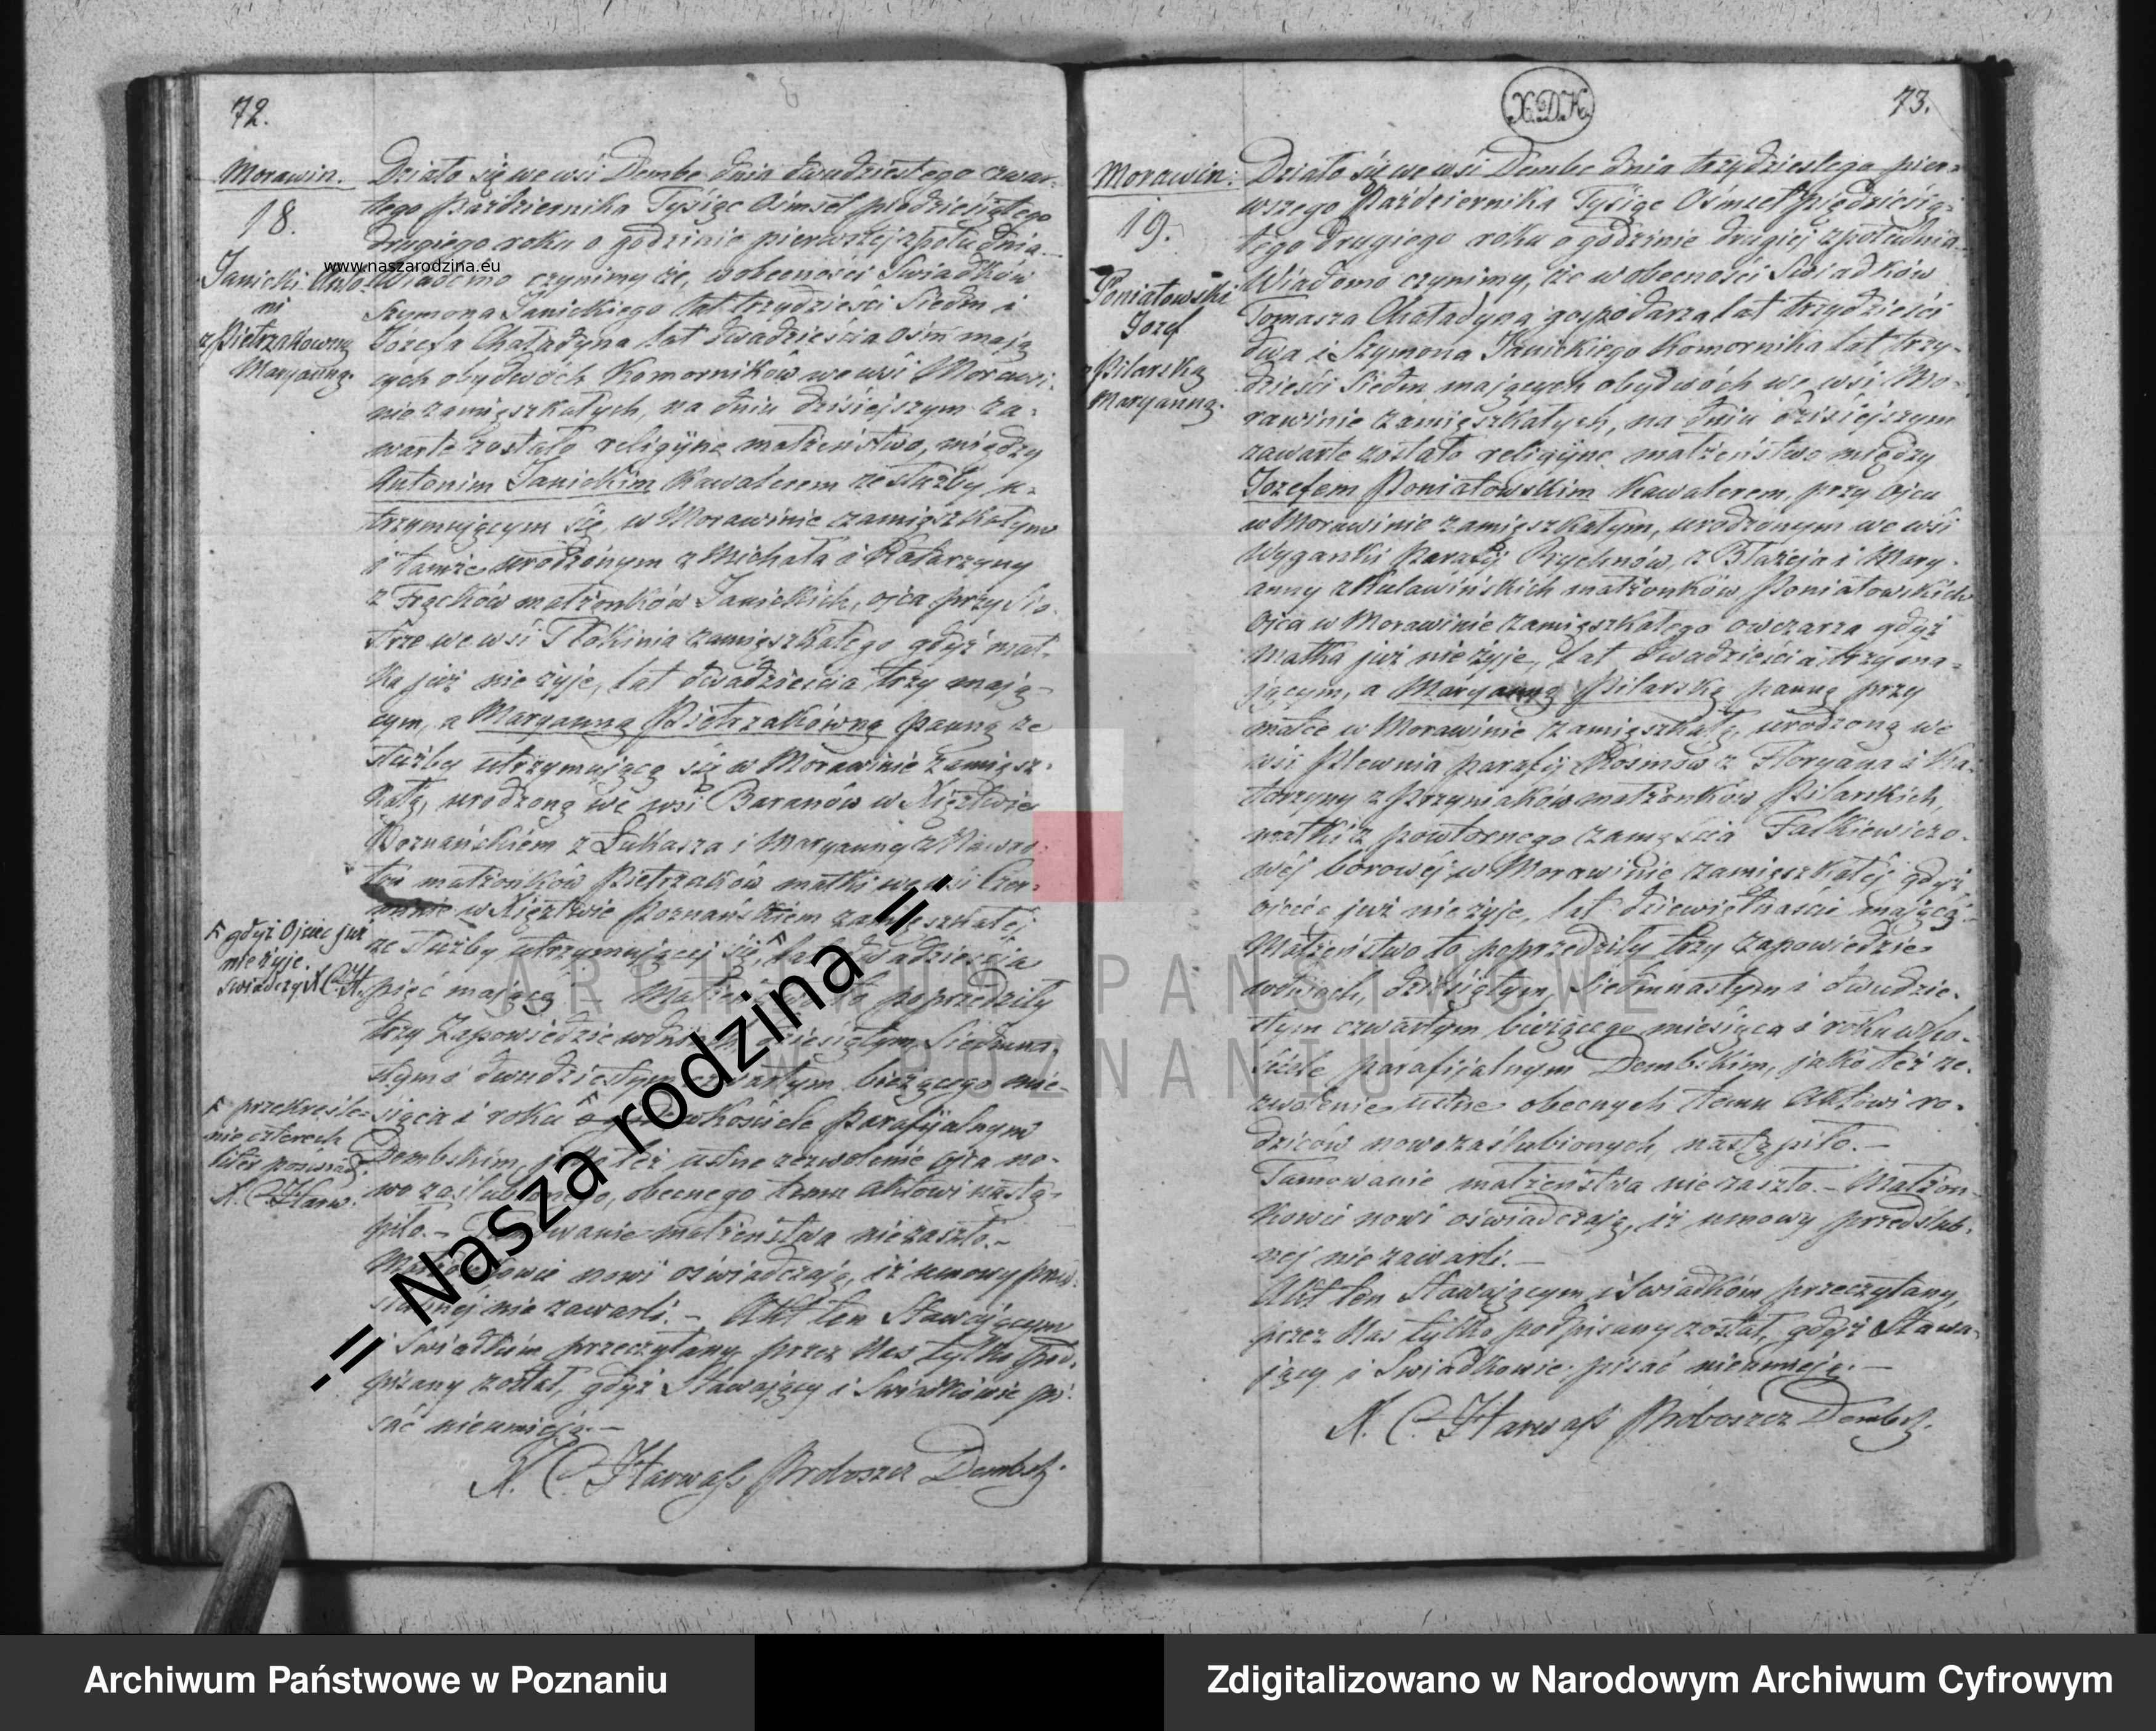 72.
Morawin.
18.
Janicki Anto-
ni
z Pietrzakówną
Maryanną.
Działo się we wsi Dembe dnia dwudziestego czwar-
tego Października Tysiąc Ośmset piędziesiątego
drugiego roku o godzinie pierwszej z południa.
Wiadomo czynimy, że, w obecności Świadków
Szymona Janickiego lat trzydzieści siedm i
Józefa Chaładyna lat dwadzieścia ośm mają
cych obydwóch Komorników we wsi Morawi-
nie zamięszkałych, na dniu dzisiejszym za-
warte zostało religijne małżeństwo, między
Antonim Janickim Kawalerem ze służby u-
trzymującym się, w Morawinie zamięszkałym
i tamże urodzonym z Michała i Katarzyny
z Frąków małżonków Janickich, ojca przy Sio-
strze we wsi Tłokinia zamięszkałego gdyż mat-
ka już nie żyje, lat dwadzieścia trzy mają-
cym, a Maryanną Pietrzakówną panną ze
służby utrzymującą się w Morawinie zamięsz-
kałą, urodzoną we wsi Baranów w Xięztwie
Poznańskiem z Łukasza i Maryanny z
małżonków Pietrzaków matki we wsi
w Xięztwie Poznańskiem zamięszkałej
ze służby utrzymującej się, lat dwadzieścia
pięć mającą – Małżeństwo to poprzedziły
trzy Zapowiedzie w dniach dziesiątym, Siedmna-
stym i dwudziestym czwartym bieżącego mie-
siąca i roku w kościele Parafijalnym
Dembskim, jako też ustne zezwolenie ojca no-
wo zaślubionego, obecnego temu aktowi nastą-
piło. – Tamowanie małżeństwa nie zaszło. –
Małżonkowie nowi oświadczają, iż umowy przed-
ślubnej nie zawarli. – Akt ten Stawającym
i Świadkom przeczytany przez Nas tylko pod-
pisany został, gdyż Stawający i Świadkowie pi-
sać nieumieją. –
X. C. Harwass Proboszcz Dembsk.
gdyż Ojciec już
nie żyje.
świadczy X C. H.
przekreśle-
nie czterech
liter poświad.
X. C. Harw.
X.D.K.
73.
Morawin.
19.
Poniatowski
Jozef
z Pilarską
Maryanną.
Działo się we wsi Dembe dnia trzydziestego pier-
wszego Października Tysiąc Ośmset pięździesią-
tego drugiego roku o godzinie drugiej z południa.
Wiadomo czynimy, że w obecności Świadków
Tomasza Chaładyna gospodarza lat trzydzieści
dwa i Szymona Janickiego Komornika lat trzy-
dzieści siedm mających obydwóch we wsi Mo-
rawinie zamięszkałych, na dniu dzisiejszym
zawarte zostało religijne małżeństwo między
Jozefem Poniatowskim Kawalerem, przy ojcu
w Morawinie zamięszkałym, urodzonym we wsi
Wyganki Parafij Rychnów, z Błażeja i Mary-
anny z Kuławińskich małżonków Poniatowskich
Ojca w Morawinie zamięszkałego owczarza gdyż
matka już nie żyje, lat dwadzieścia trzy ma-
jącym, a Maryanną Pilarską panną przy
matce w Morawinie zamięszkałą, urodzoną we
wsi Plewnia parafij Kosmów z Floryana i Ka-
tarzyny z Przyniaków małżonków Pilarskich,
matki z powtórnego zamęścia Falkiewiczo-
wéj borowéj w Morawinie zamięszkałéj gdyż
ojciec już nie żyje, lat dziewiętnaście mającą. –
Małżeństwo to poprzedziły trzy zapowiedzie
w dniach, dziesiątym, Siedmnastym i dwudzie-
stym czwartym bieżącego miesiąca i roku w ko-
ściele parafijalnym Dembskim, jako też ze-
zwolenie ustne obecnych temu Aktowi ro-
dziców nowozaślubionych, nastąpiło. –
Tamowanie małżeństwa nie zaszło. – Małżon-
kowie nowi oświadczają, iż umowy przedślub-
nej nie zawarli. –
Akt ten Stawającym i Świadkom przeczytany,
przez Nas tylko podpisany został, gdyż Stawa-
jący i Świadkowie pisać nieumieją. –
X. C. Harwass Proboszcz Dembsk.
www.naszarodzina.eu
-= Nasza rodzina =-
ARCHIWUM PAŃSTWOWE
W POZNANIU
Archiwum Państwowe w Poznaniu
Zdigitalizowano w Narodowym Archiwum Cyfrowym